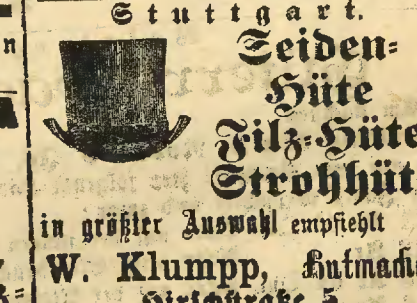 Stuttgart.
Seiden-
Hüte
Filz-Hüte
Strohhüt
in größter Auswahl empfiehlt
W. Klumpp, Hutmache
Hirschstraße 5